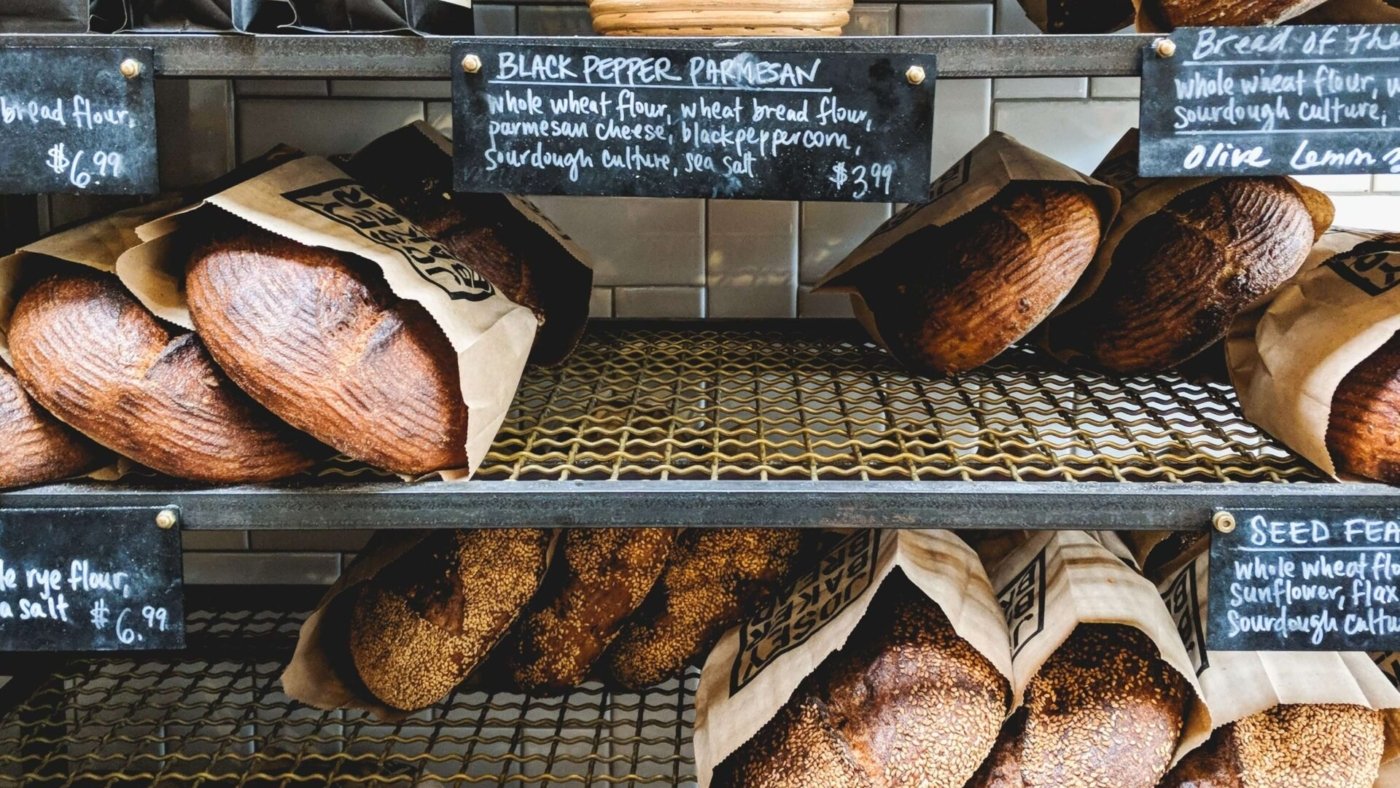 bread flour,
$6.99
BLACK PEPPER PARMESAN
whole wheat flour, wheat bread flour,
parmesan cheese, blackpeppercorn,
sourdough culture, sea salt
$3.99
Bread of the
whole wheat flour,
sourdough culture,
Olive Lemon
JOSEY
BAKER
rye flour,
salt $6.99
JOSEY
BAKER
BREAD
SEED FEA
whole wheat flo
sunflower, flax
sourdough cultu